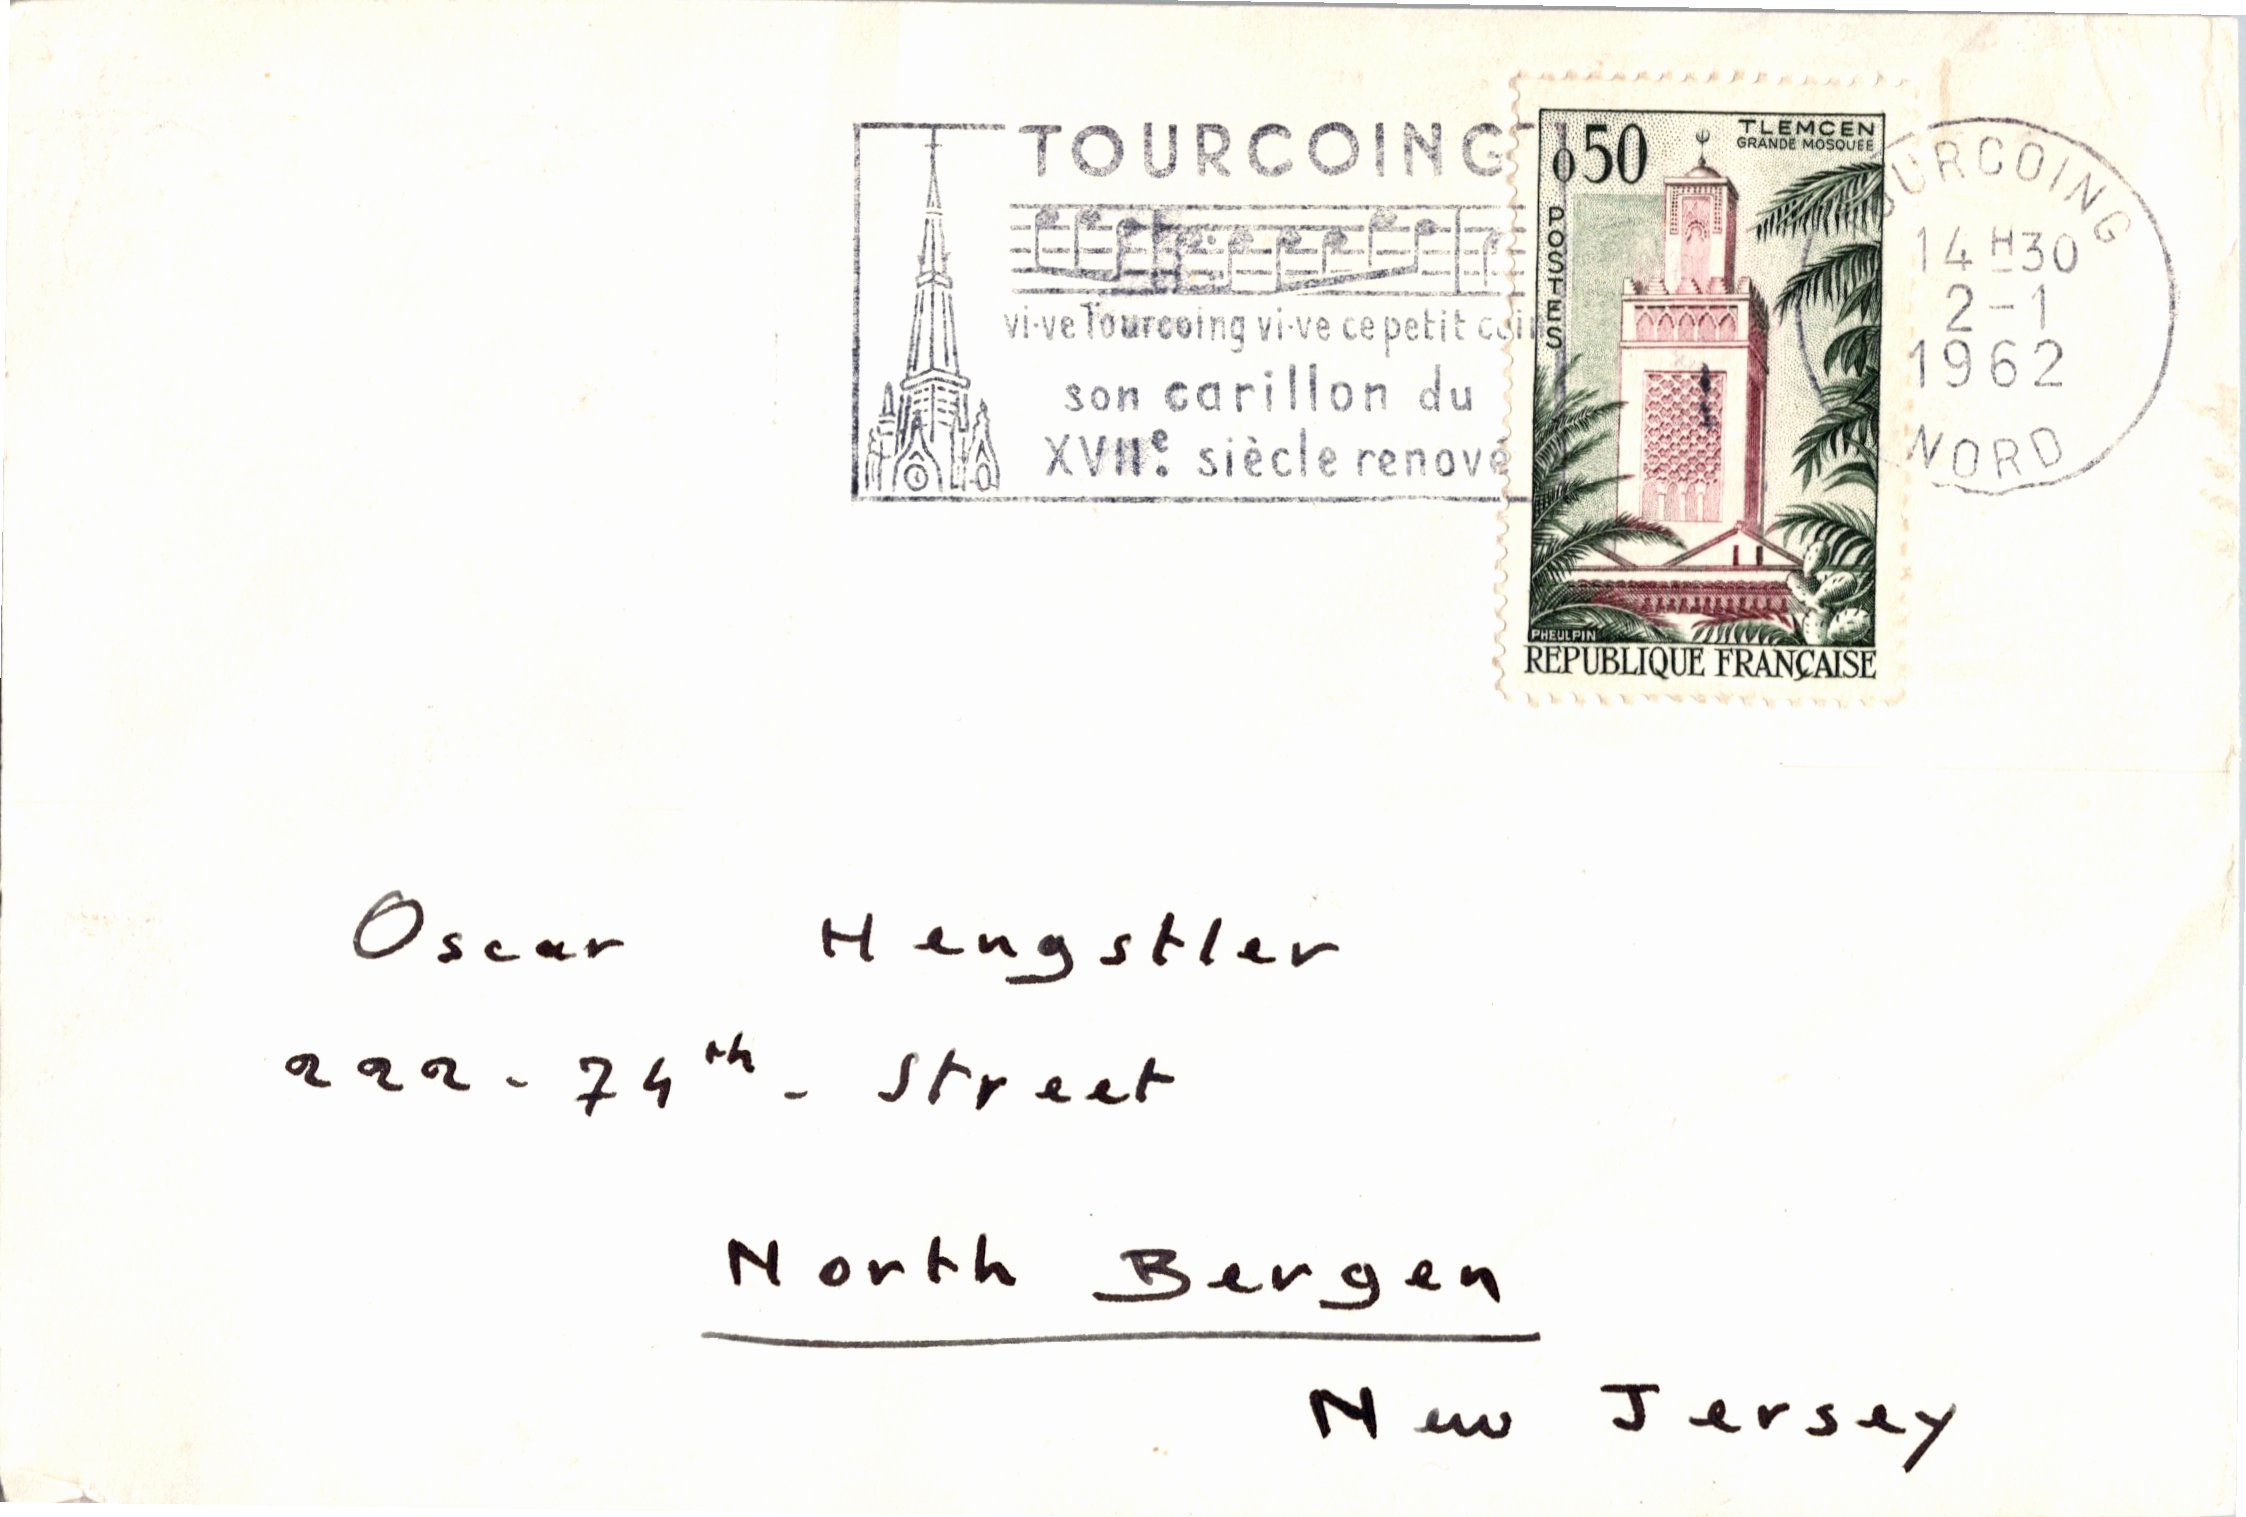 TOURCOING
vi-ve Tourcoing vi-ve ce petit coin
son carillon du
XVIIe. siècle renové
0,50
TLEMCEN
GRANDE MOSQUÉE
POSTES
PHEULPIN
REPUBLIQUE FRANÇAISE
TOURCOING
14 H 30
2-1
1962
NORD
Oscar Hengstler
222 - 74th - Street
North Bergen
New Jersey